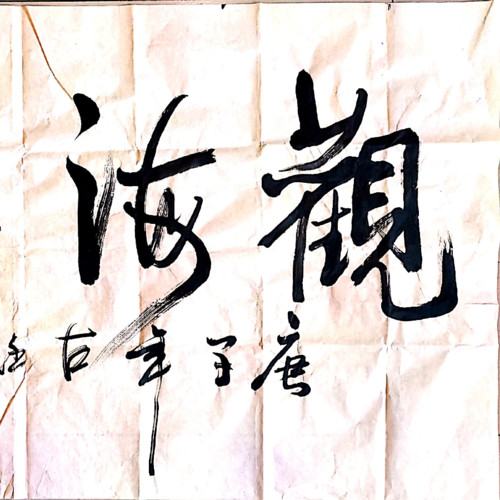 觀海
庚子年古